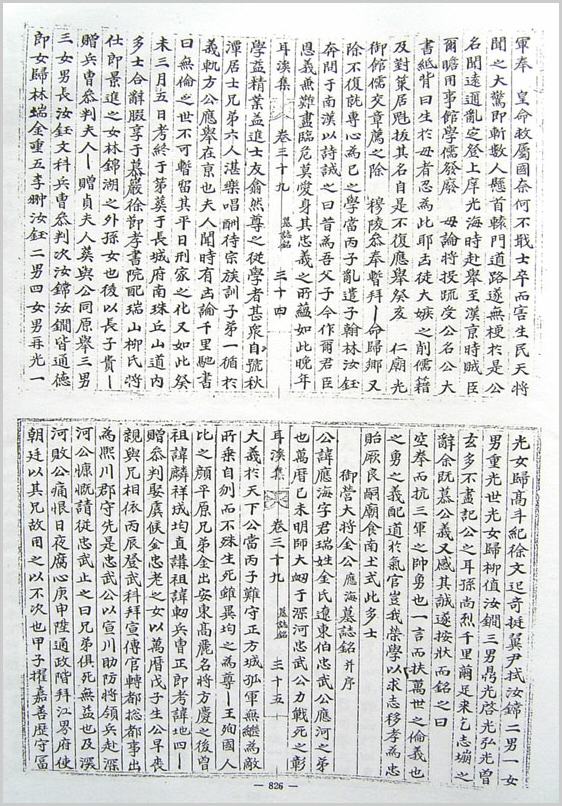 軍奉　皇命救屬國奈何不戢士卒而害生民天將
聞之大驚即斬數人懸首轅門道路遂無梗於是公
名聞遠邇亂定登上庠光海時赴舉至漢京時賊臣
爾瞻用事館學儒發廢　母論將投疏受公名公大
書紙背曰生於母者忍為此耶出徒大嫉之削儒籍
及對策居魁拔其名自是不復應舉癸亥　仁廟光
御館儒交章薦之除　穆陵叅奉暫拜｜命歸鄉又
除不復就專心為己之學當丙子亂遣子翰林汝鈺
奔問于南漢以詩誡之曰昔為吾父子今作爾君臣
恩義無難盡臨危莫愛身其忠義之所蘊如此晚年
耳溪集　卷三十九　墓誌銘　三十四
學益精業益進士友翕然尊之從學者甚衆自號秋
潭居士兄弟六人湛樂唱酬待宗族訓子弟一循於
義軌方公應舉在京也夫人聞時有出論千里馳書
曰無倫之世不可暫留其平日刑家之化又如此癸
未三月五日考終于第葬于長城府南珠丘山道內
多士合辭腏享于慕巖徐節孝書院配瑞山柳氏將
仕郎景進之女林錦湖之外孫女也後以長子貴｜
贈兵曹叅判夫人｜贈貞夫人葬與公同原舉三男
三女男長汝鈺文科兵曹叅判次汝錦汝鐧皆通德
郎女歸林瑞金重五李翀汝鈺二男四女男再光一
光女歸高斗紀徐文迟奇挺翼尹拭汝錦二男一女
男重光世光女歸柳值汝鐧三男鼎光啓光弘光曾
玄多不盡記公之耳孫尚烈千里繭足來乞志堋之
辭余既慕公義又感其誠遂按狀而銘之曰
空拳而抗三軍之帥勇也一言而扶萬世之倫義也
之勇之義配道於氣官豈我榮學以求志移孝為忠
貽厥良嗣廟食南土式此多士
御營大將金公應海墓誌銘并序
公諱應海字君瑞姓金氏遼東伯忠武公應河之弟
也萬曆己未明師大衂于深河忠武公力戰死之彰
耳溪集　卷三十九　墓誌銘　三十五
大義於天下公當丙子難守正方城孤軍無繼為敵
所乘自刎而不殊生死雖異均之為尊｜王殉國人
比之顏平原兄弟金出安東高麗名將方慶之後曾
祖諱麟祥成均直講祖諱軔兵曹正郎考諱地四｜
贈叅判娶虞候金忠老之女以萬曆戊子生公早喪
親與兄相依丙辰登武科拜宣傳官轉都摠都事出
為熙川郡守先是忠武公以宣川助防將領兵赴深
河公慷慨請從忠武止之曰兄弟俱死無益也及深
河敗公痛恨日夜腐心庚申陞通政階拜江界府使
朝廷以其兄故用之以不次也甲子擢嘉善歷守富
— 826 —